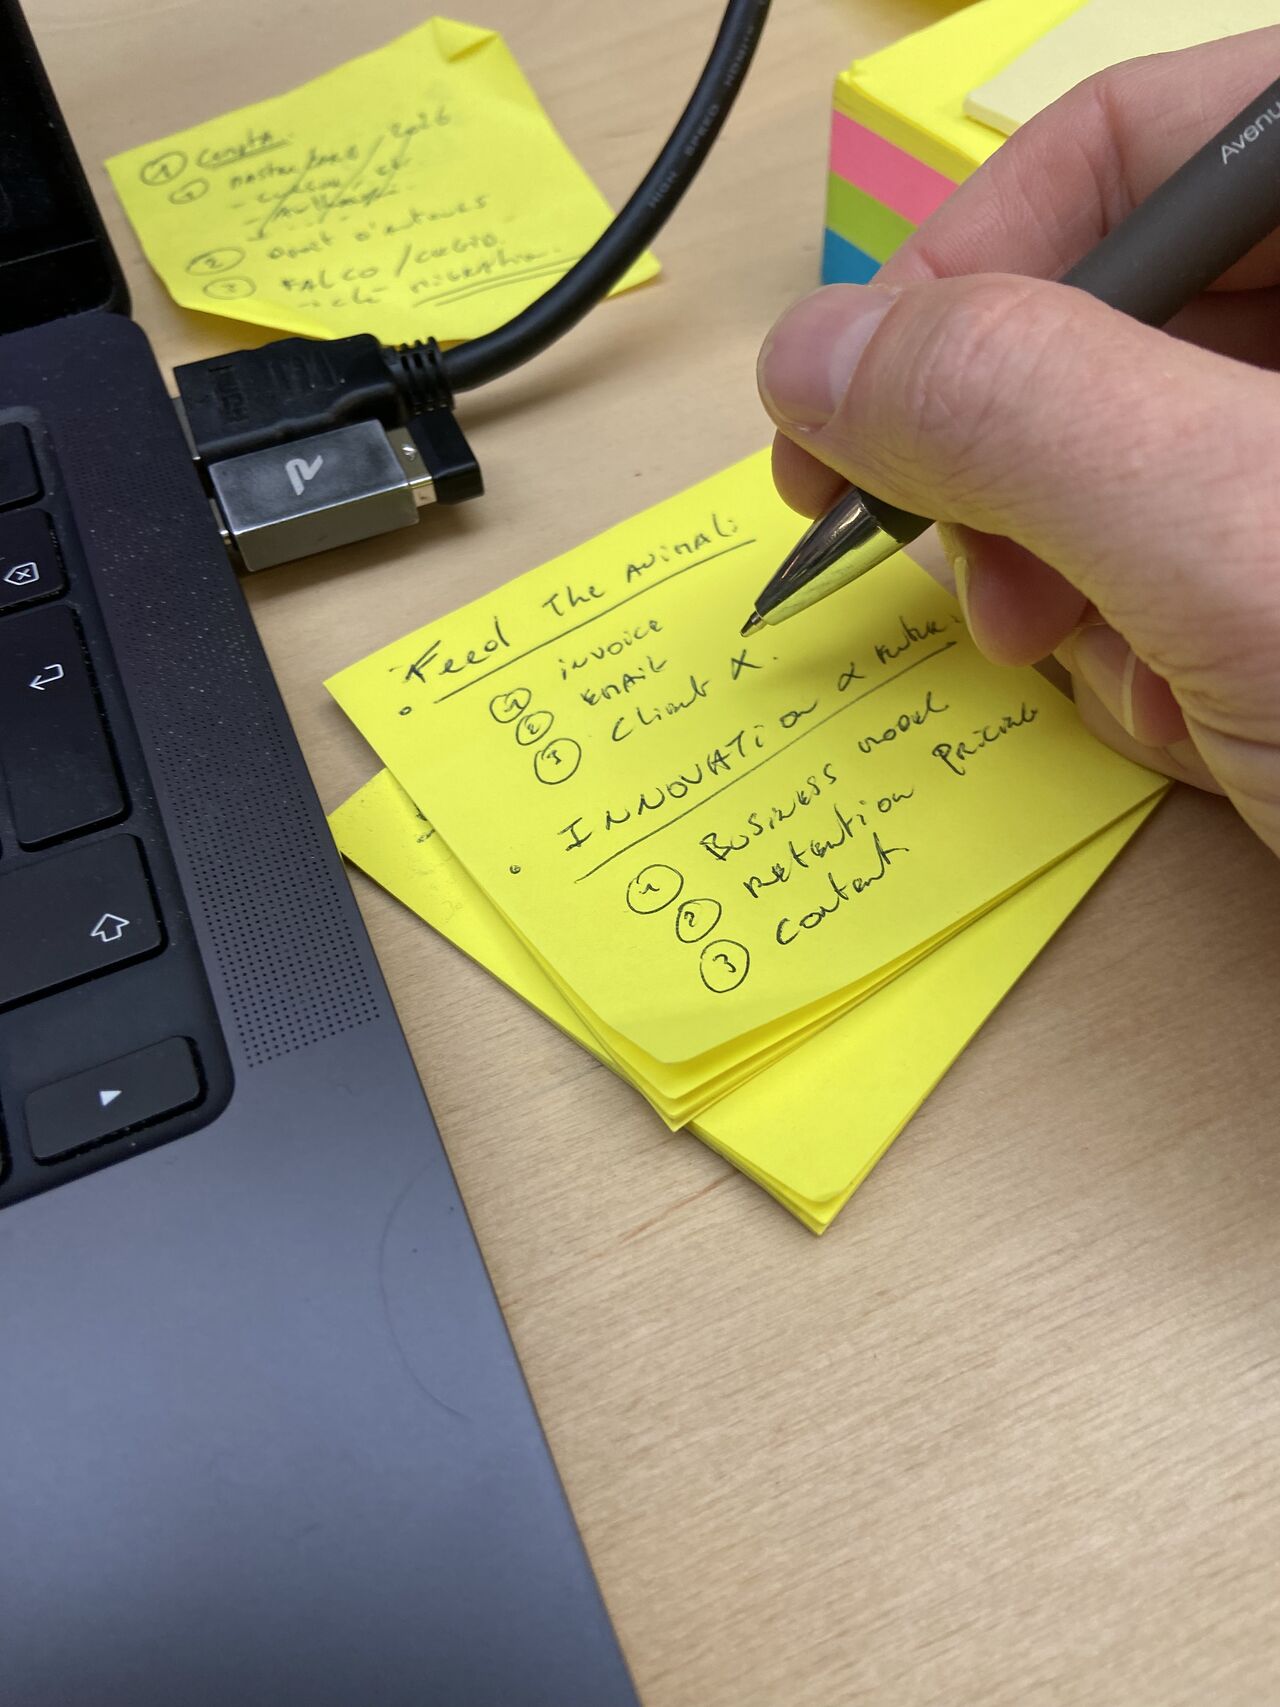 ① Compta
2026
② Droit d'auteurs
③ FALCO / CEGID
HIGH SPEED HDMI
Avenu
Feed The Animal:
① invoice
② EMAIL
③ Client X.
INNOVATION & Future:
① Business model
② Retention Pricing
③ Content